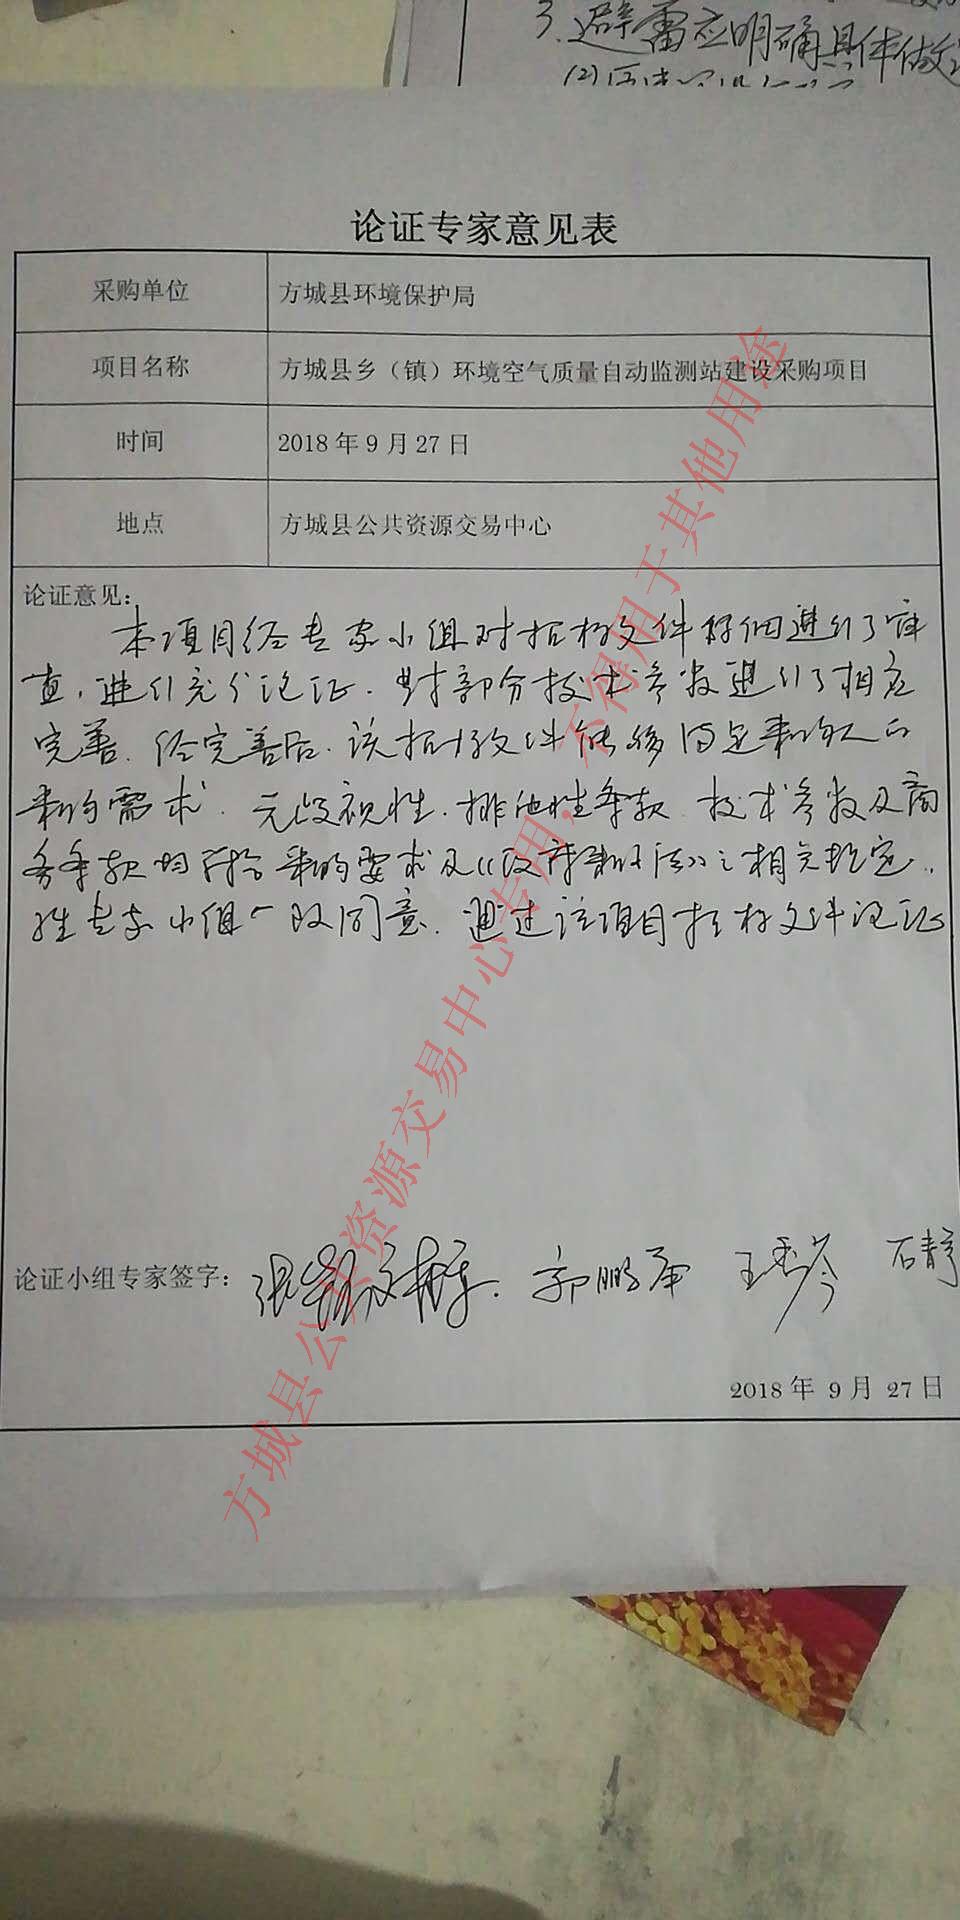 3. 避雷应明确具体做法
(2)
论证专家意见表
采购单位 方城县环境保护局
项目名称 方城县乡（镇）环境空气质量自动监测站建设采购项目
时间 2018 年 9 月 27 日
地点 方城县公共资源交易中心
论证意见：
本项目经专家小组对招标文件仔细进行了审
查，进行充分论证．对部分技术参数进行了相应
完善．经完善后．该招标文件能够满足采购人的
采购需求．无歧视性．排他性条款．技术参数及商
务条款均符合采购要求及《政府采购法》之相关规定．
经专家小组一致同意．通过该项目招标文件论证
论证小组专家签字： 郭鹏 王秀芩 石静
2018 年 9 月 27 日
方城县公共资源交易中心专用，不得用于其他用途